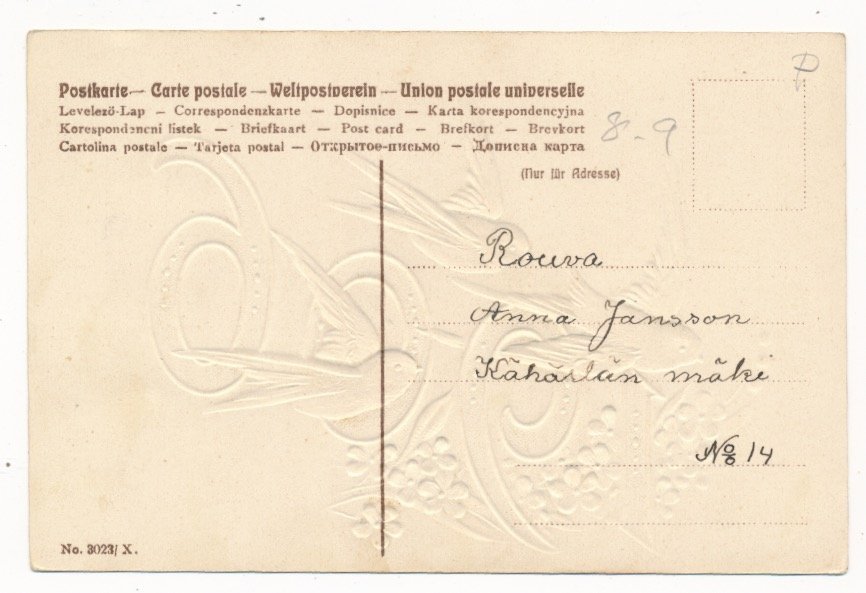 Postkarte — Carte postale — Weltpostverein — Union postale universelle
Levelező-Lap — Correspondenzkarte — Dopisnice — Karta korespondencyjna
Korespondencni listek — Briefkaart — Post card — Brefkort — Brevkort
Cartolina postale — Tarjeta postal — Открытое-письмо — Дописна карта
(Nur für Adresse)
P
8-9
Rouva
Anna Jansson
Kähärlän mäki
No 14
No. 3023/ X.